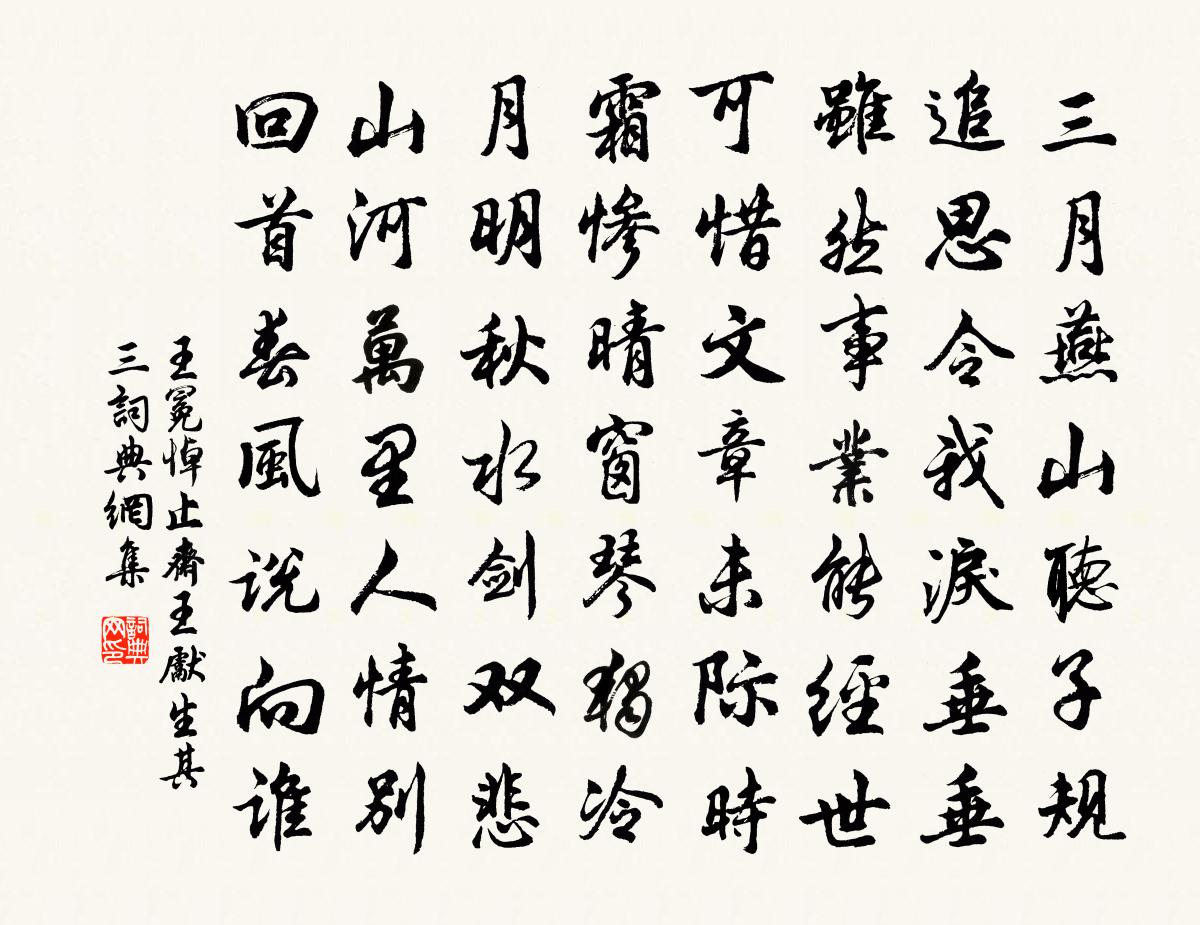 三月燕山聽子規
追思令我淚垂垂
雖然事業能經世
可惜文章未际時
霜慘晴窗琴獨冷
月明秋水劍双悲
山河萬里人情別
回首春風说向誰
王冕悼止齋王獻生其
三詞典網集
詞典网印